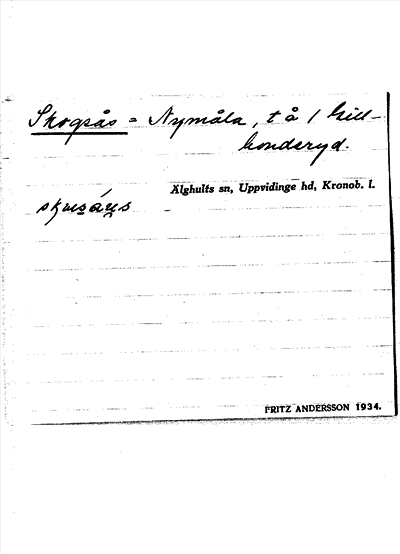 Skogsås = Nymåla, t å 1 Kill-
bonderyd.
Älghults sn, Uppvidinge hd, Kronob. l.
FRITZ ANDERSSON 1934.